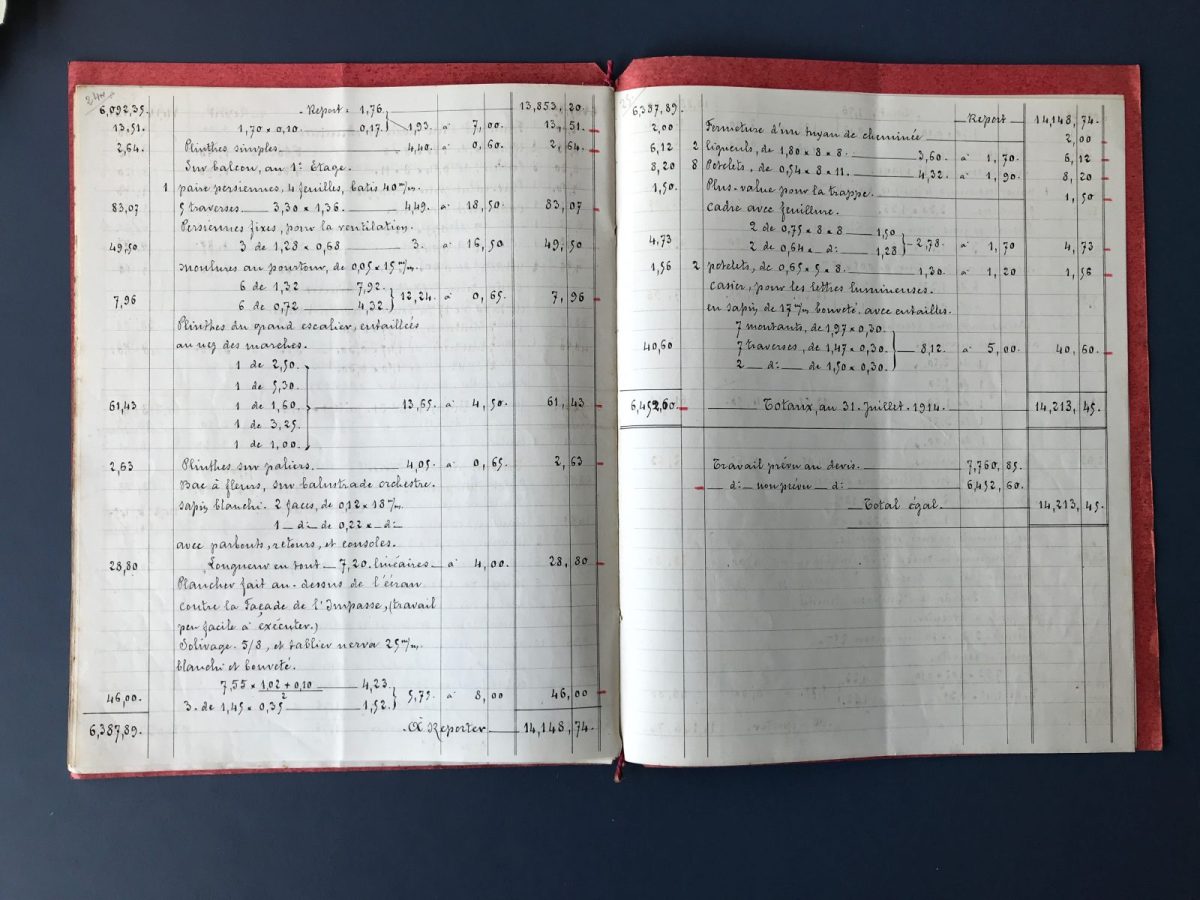 24
6,092,35. Report. 1,76. 13,853, 20.
13,51. 1,70 x 0,10 0,17. 1,93. à 7,00. 13, 51.
2,64. Plinthes simples. 4,40. à 0,60. 2, 64.
Sur balcon, au 1: Etage.
1 paire persiennes, 4 feuilles, batis 40 m/m.
83,07 5 traverses 3,30 x 1,36. 4,49. à 18,50. 83, 07
Persiennes fixes, pour la ventilation.
49,50 3 de 1,28 x 0,68 3. à 16,50 49, 50
Moulures au pourtour, de 0,05 x 15 m/m.
6 de 1,32 7,92.
7,96 12,24. à 0,65. 7, 96
6 de 0,72 4,32.
Plinthes du grand escalier, entaillées
au nez des marches.
1 de 2,50.
1 de 5,30.
61,43 1 de 1,60. 13,65. à 4,50. 61, 43
1 de 3,25.
1 de 1,00.
2,63 Plinthes sur paliers. 4,05. à 0,65. 2, 63
Bac à fleurs, sur balustrade orchestre.
sapin blanchi. 2 faces, de 0,12 x 18 m/m.
1 d: de 0,22 x d:
avec partouts, retours, et consoles.
28,80 Longueur en tout 7,20. linéaires à 4,00. 28, 80
Plancher fait au-dessus de l'écran
contre la Façade de l'Impasse, (travail
peu facile à exécuter.)
Solivage. 5/8, et tablier nerva 25 m/m.
blanchi et bouveté.
7,55 x 1,02 + 0,10 / 2 4,23.
46,00. 5,75. à 8,00 46,00
3. de 1,45 x 0,35 1,52.
6,387,89. À Reporter 14,148, 74.
25
6,387,89. Report 14,148, 74.
2,00 Fermeture d'un tuyau de cheminée 2, 00
6,12 2 liguculs, de 1,80 x 8 x 8. 3,60. à 1,70. 6, 12
8,20 8 Potelets, de 0,54 x 8 x 11. 4,32. à 1,90. 8, 20
1,50. Plus-value pour la trappe. 1, 50
cadre avec feuillure.
2 de 0,75 x 8 x 8 1,50
4,73 2,78. à 1,70 4, 73
2 de 0,64 x d: 1,28
1,56 2 potelets, de 0,65 x 5 x 8. 1,30. à 1,20 1, 56
casier, pour les lettres lumineuses.
en sapin de 17 m/m bouveté. avec entailles.
7 montants, de 1,97 x 0,30.
40,60 7 traverses, de 1,47 x 0,30. 8,12. à 5,00. 40, 60.
2 d: de 1,50 x 0,30.
6,452,60. Totaux, au 31. Juillet. 1914. 14,213, 45.
Travail prévu au devis. 7,760, 85.
d: non prévu d: 6,452, 60.
Total égal. 14,213, 45.